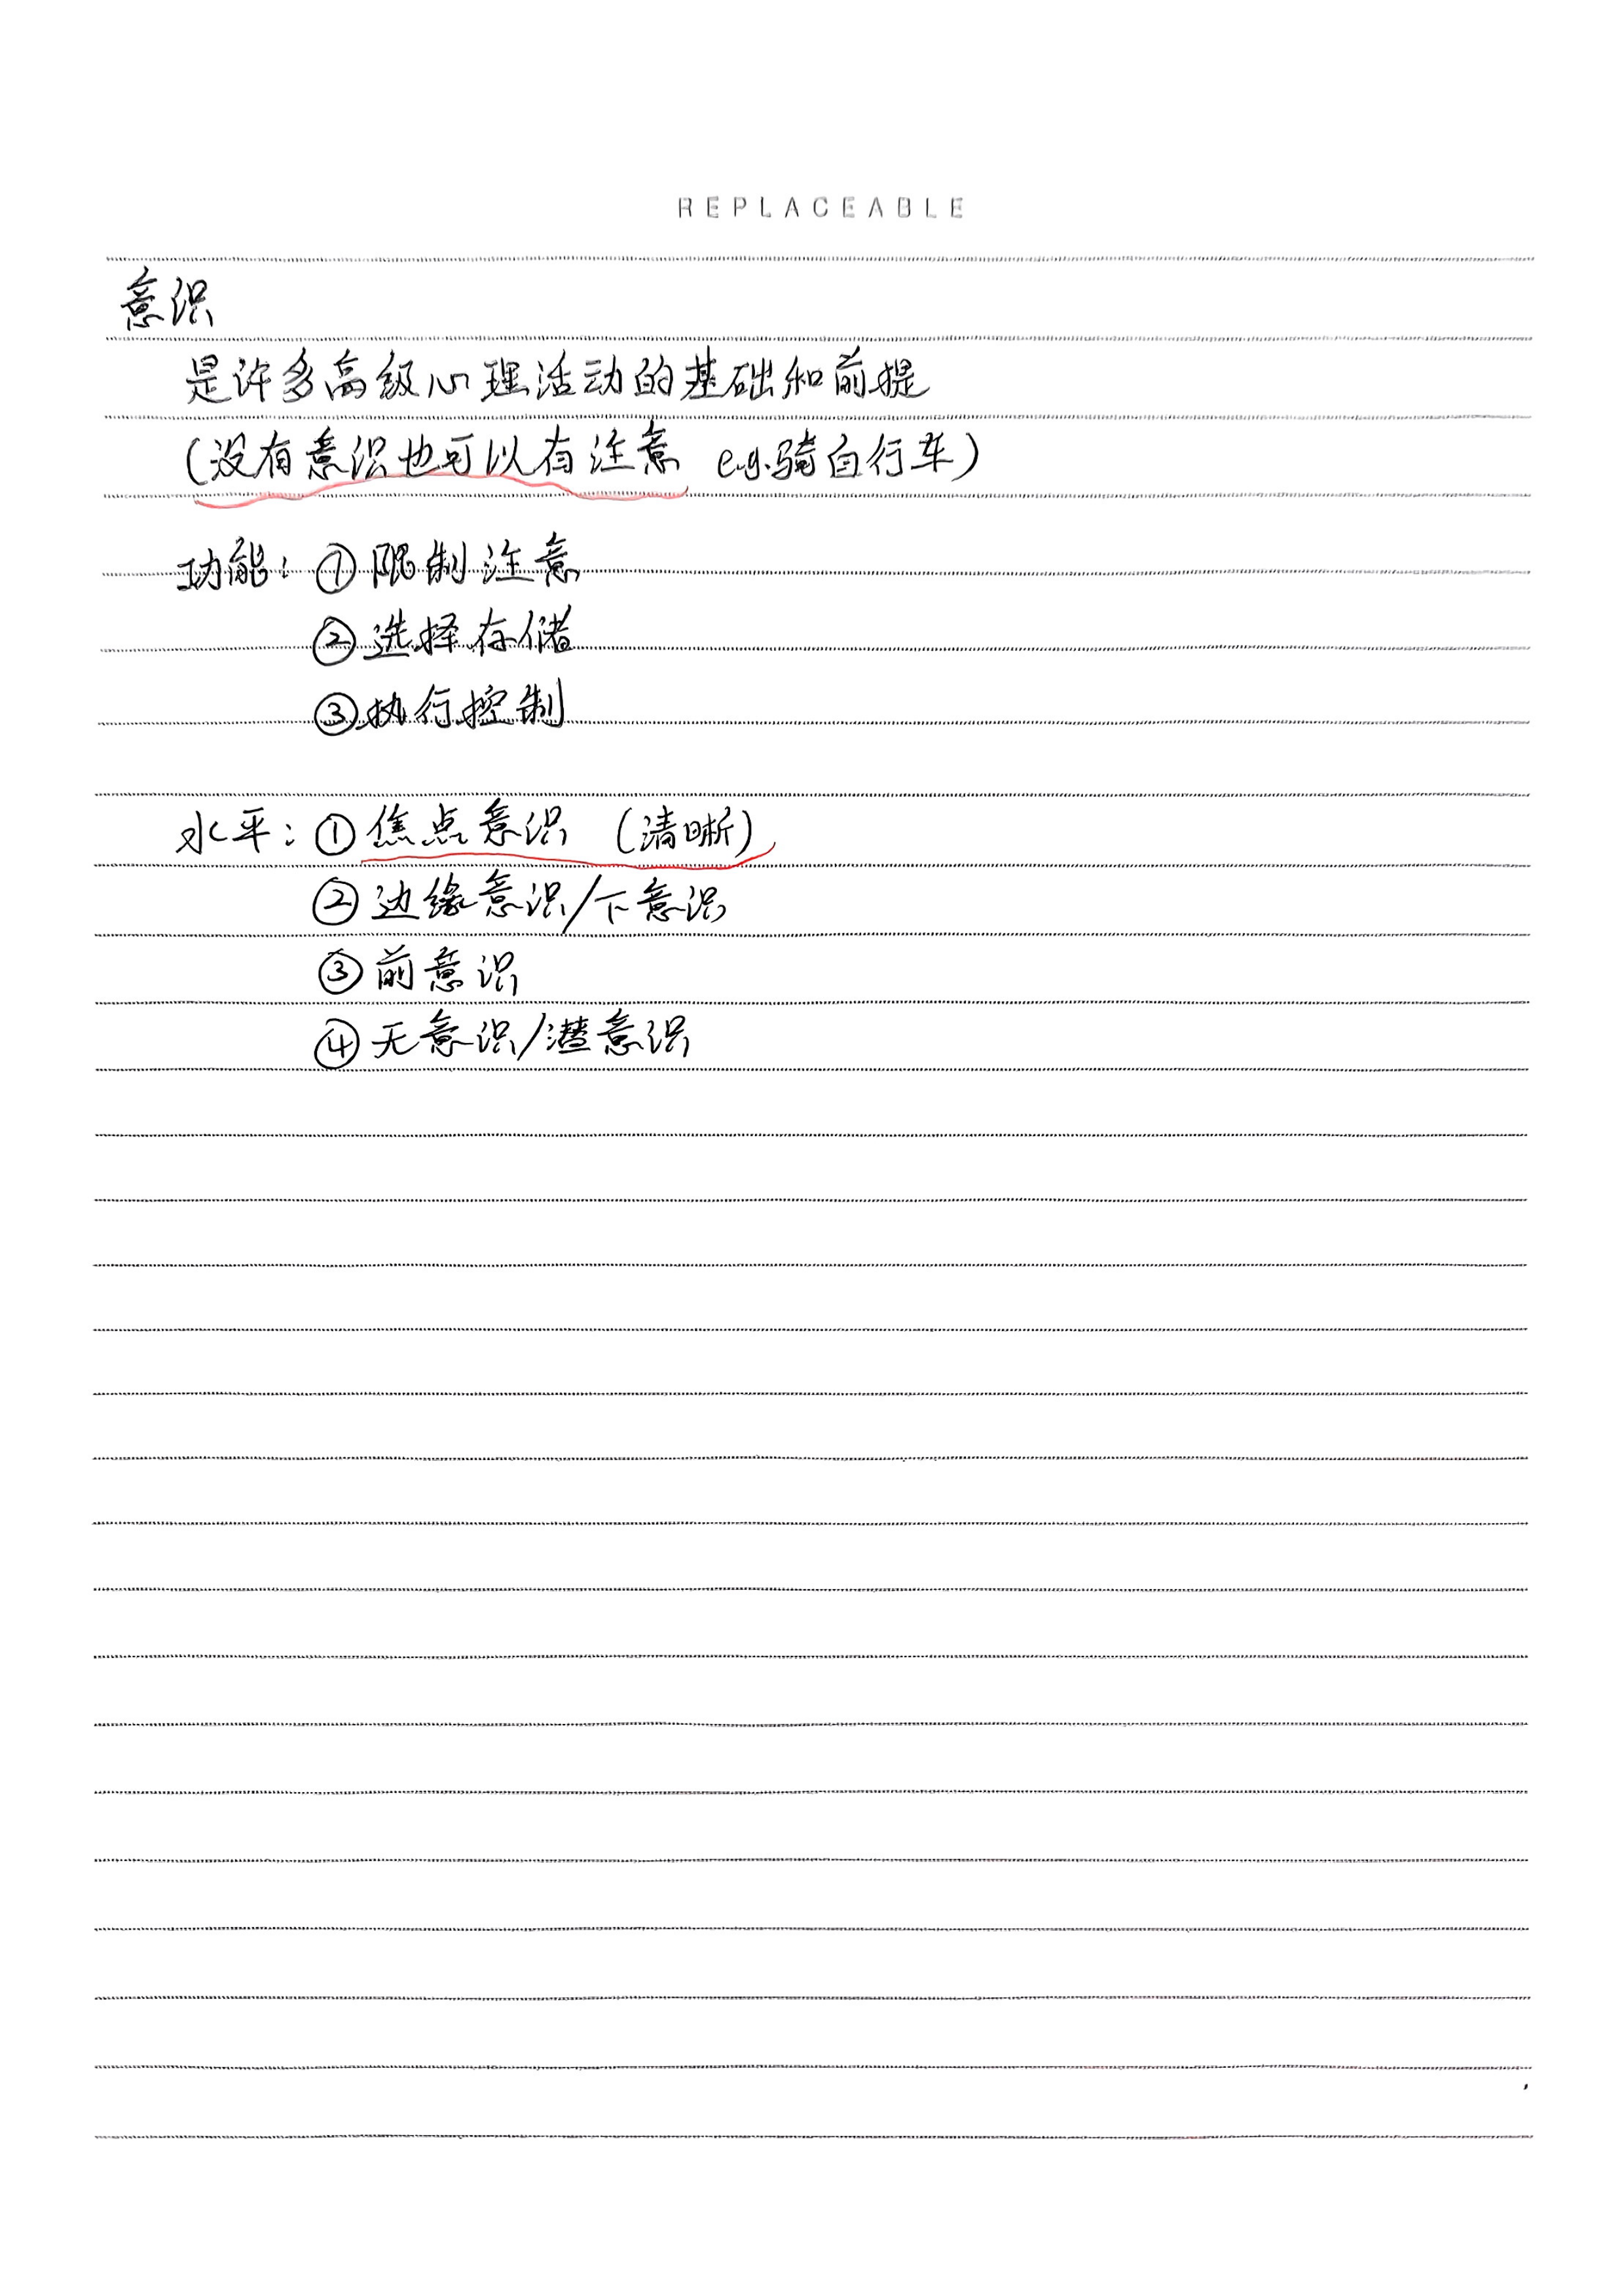 REPLACEABLE
意识
是许多高级心理活动的基础和前提
(没有意识也可以有注意 e.g.骑自行车)
功能：①限制注意
②选择存储
③执行控制
水平：①焦点意识 (清晰)
②边缘意识/下意识
③前意识
④无意识/潜意识